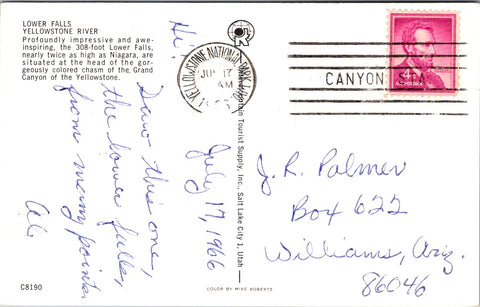 LOWER FALLS
YELLOWSTONE RIVER
Profoundly impressive and awe-
inspiring, the 308-foot Lower Falls,
nearly twice as high as Niagara, are
situated at the head of the gor-
geously colored chasm of the Grand
Canyon of the Yellowstone.
Hi!
Saw this one,
the lower falls,
from many points.
Al.
July 17, 1966
C8190
Tourist Supply, Inc., Salt Lake City 1, Utah
COLOR BY MIKE ROBERTS
YELLOWSTONE NATIONAL PARK
17
AM
CANYON STA.
J. R. Palmer
Box 622
Williams, Ariz.
86046